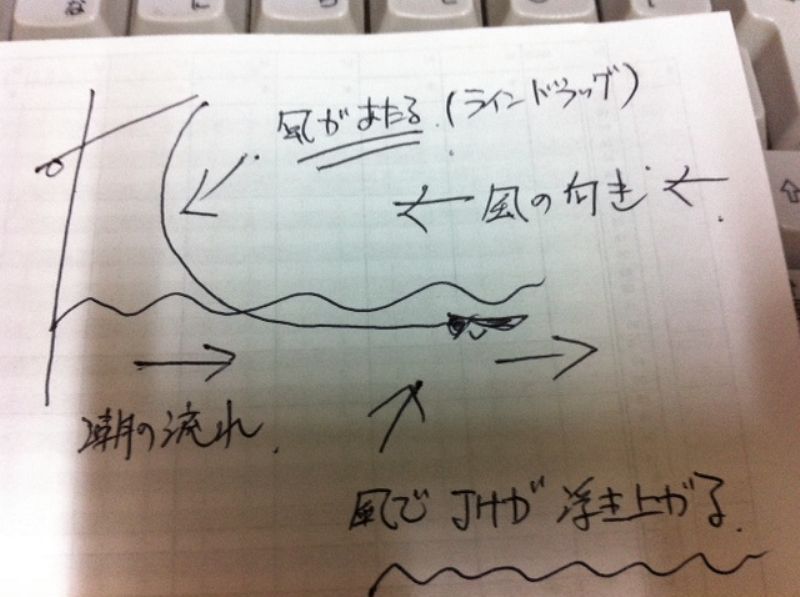 風があたる.(ラインドラッグ)
風の向き
潮の流れ.
風でJHが浮き上がる.